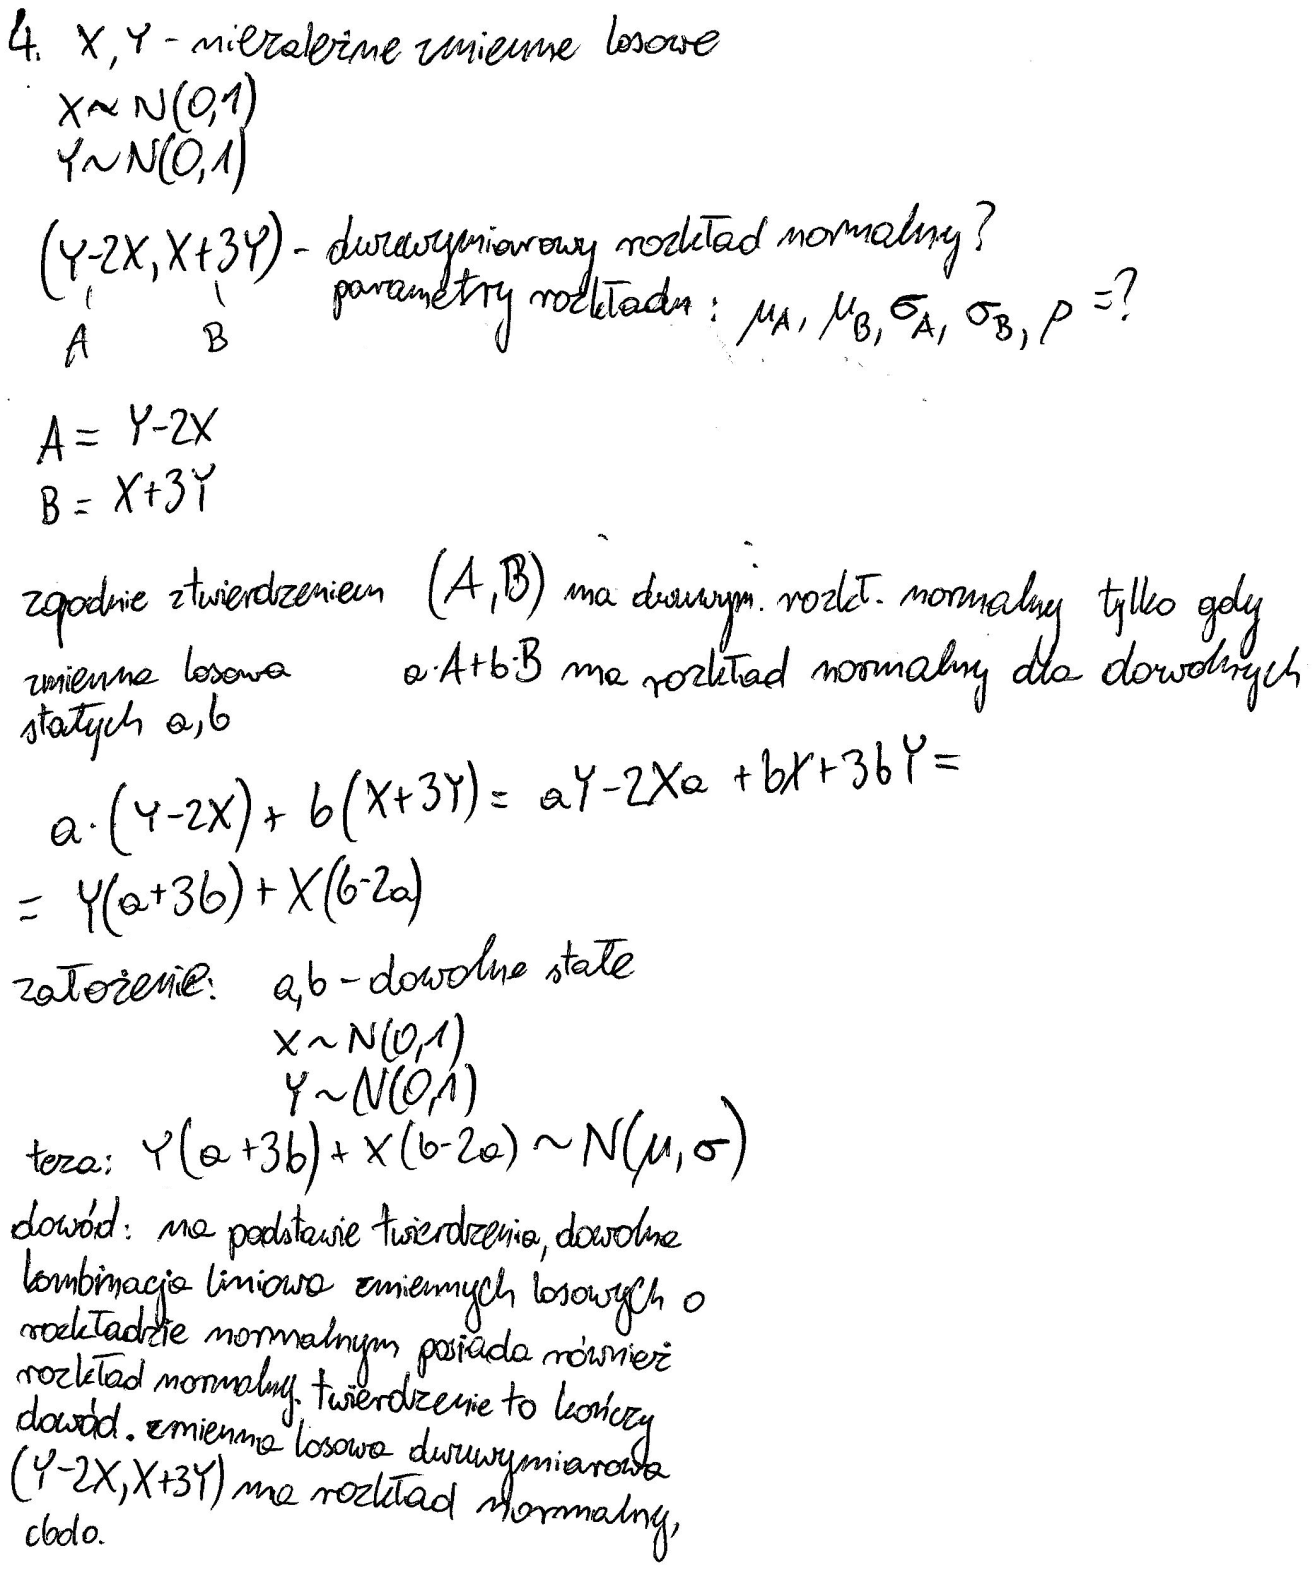 4. X, Y - niezależne zmienne losowe
X ~ N(0,1)
Y ~ N(0,1)
(Y-2X, X+3Y) - dwuwymiarowy rozkład normalny?
parametry rozkładu: μA, μB, σA, σB, ρ =?
A B
A = Y-2X
B = X+3Y
zgodnie z twierdzeniem (A,B) ma dwuwym. rozkł. normalny tylko gdy
zmienna losowa a·A+b·B ma rozkład normalny dla dowolnych
stałych a,b
a·(Y-2X) + b(X+3Y) = aY-2Xa +bX+3bY =
= Y(a+3b) + X(b-2a)
założenie: a,b - dowolne stałe
X ~ N(0,1)
Y ~ N(0,1)
teza: Y(a+3b) + X(b-2a) ~ N(μ, σ)
dowód: na podstawie twierdzenia, dowolna
kombinacja liniowa zmiennych losowych o
rozkładzie normalnym posiada również
rozkład normalny. twierdzenie to kończy
dowód. zmienna losowa dwuwymiarowa
(Y-2X, X+3Y) ma rozkład normalny,
cbdo.